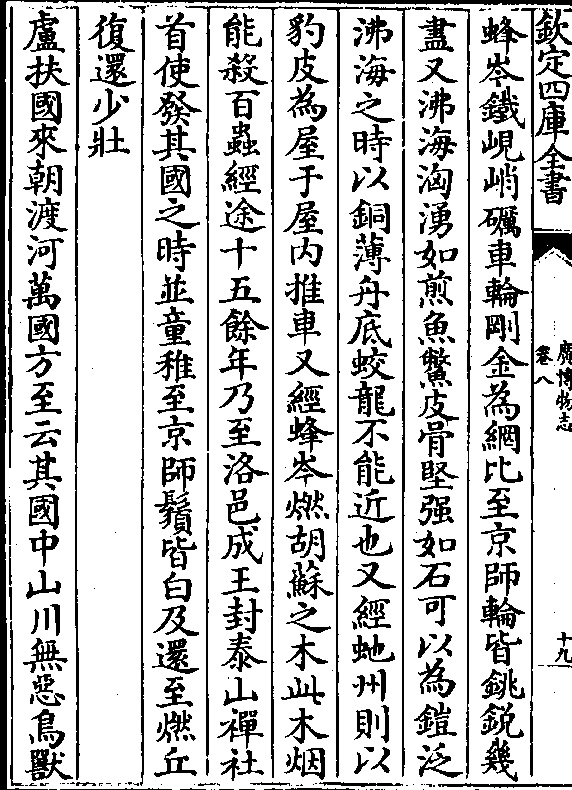 欽定四庫全書
廣博物志
卷八
十九
蜂岑鐵峴峭礪車輪剛金為網比至京師輪皆銚銳幾
盡又沸海洶湧如煎魚鱉皮骨堅强如石可以為鎧泛
沸海之時以銅薄舟底蛟龍不能近也又經虵州則以
豹皮為屋于屋内推車又經蜂岑燃胡蘇之木此木烟
能殺百蟲經途十五餘年乃至洛邑成王封泰山禪社
首使發其國之時並童稚至京師鬚皆白及還至燃丘
復還少壯
盧扶國來朝渡河萬國方至云其國中山川無惡鳥獸